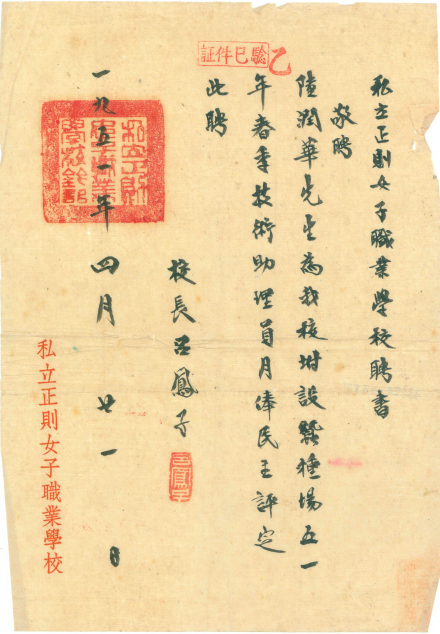 私立正則女子職業學校聘書
敬聘
陸潤華先生為我校坿設蠶種場五一
年春季技術助理員月俸民主評定
此聘
校長呂鳳子
呂鳳子
一九五一年四月廿一日
私立正則女子職業學校
驗已件証
乙